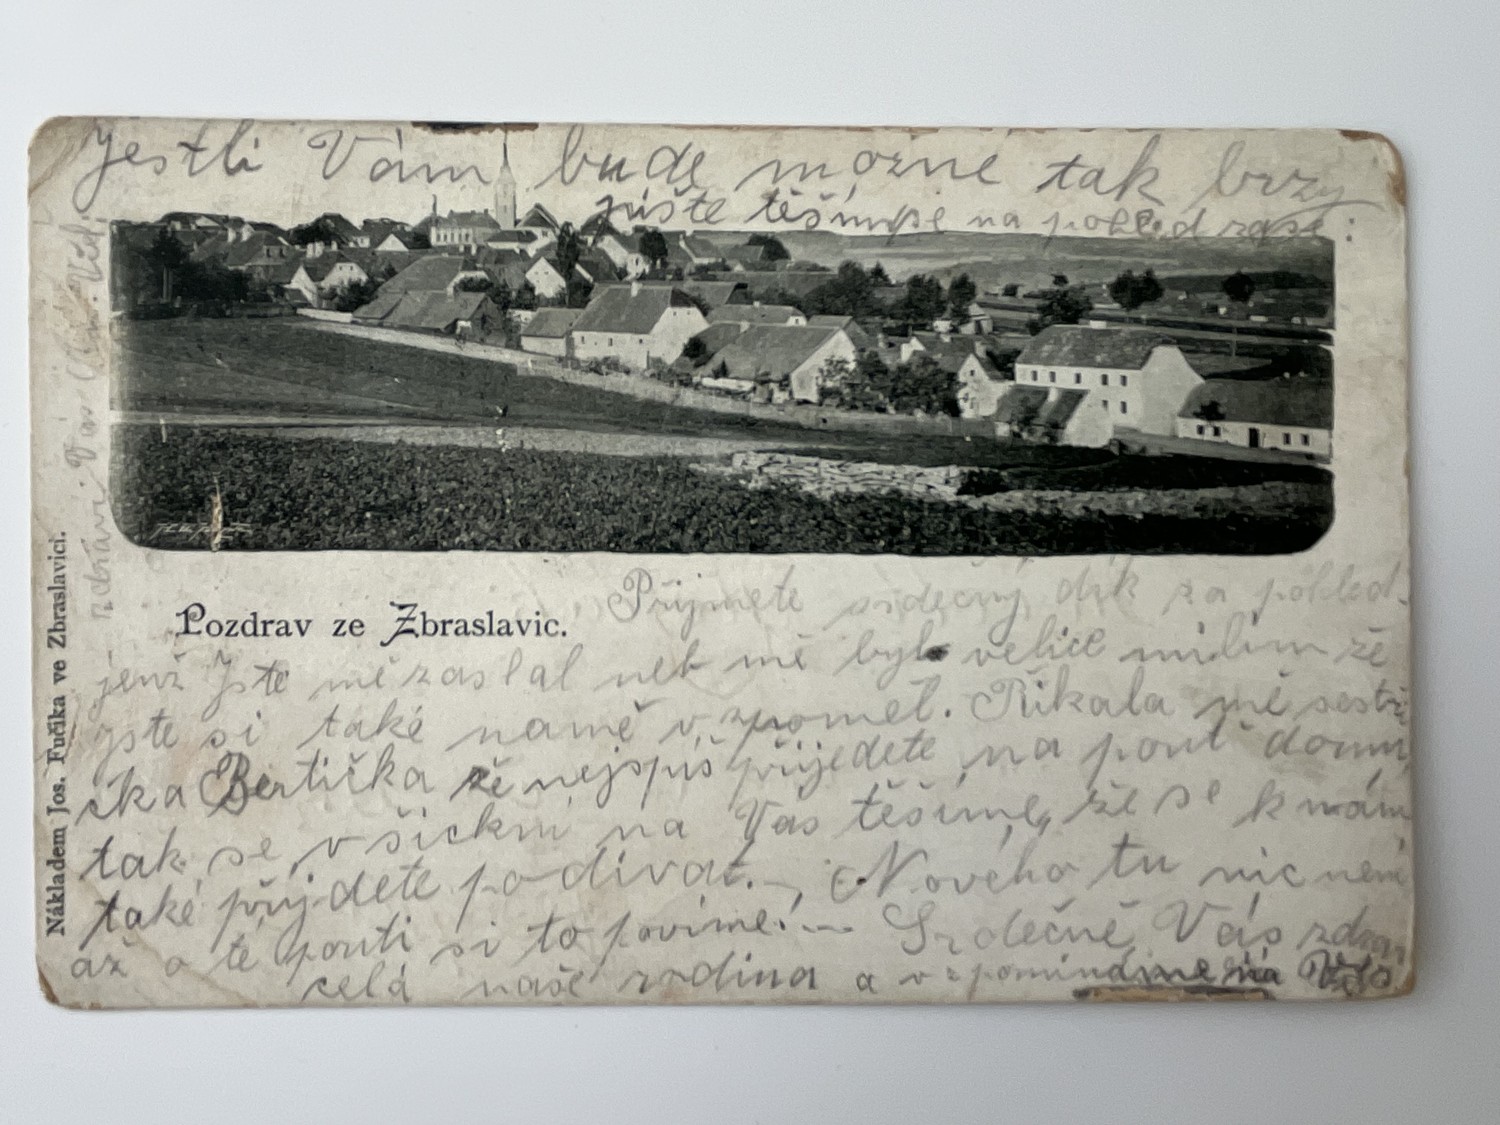 Jestli Vám bude možné tak brzy
pište těšímse na pohled zase:
Pozdrav ze Zbraslavic.
Přijmete srdečný dík za pohled.
jenž Jste mě zaslal neb mě byl velice milím že
jste si také namě vzpoměl. Řikala mě sestři
čka Bertička že nejspíš přijedete na pouť domu,
tak se všickni na Vás těšíme, že se k nám
také přijdete podívat. Nového tu nic není
až o té pouti si to povíme. Srdečně Vás zdraví
celá naše rodina a vzpomínáme na Vás.
zdraví Vás
Nákladem Jos. Fučíka ve Zbraslavici.